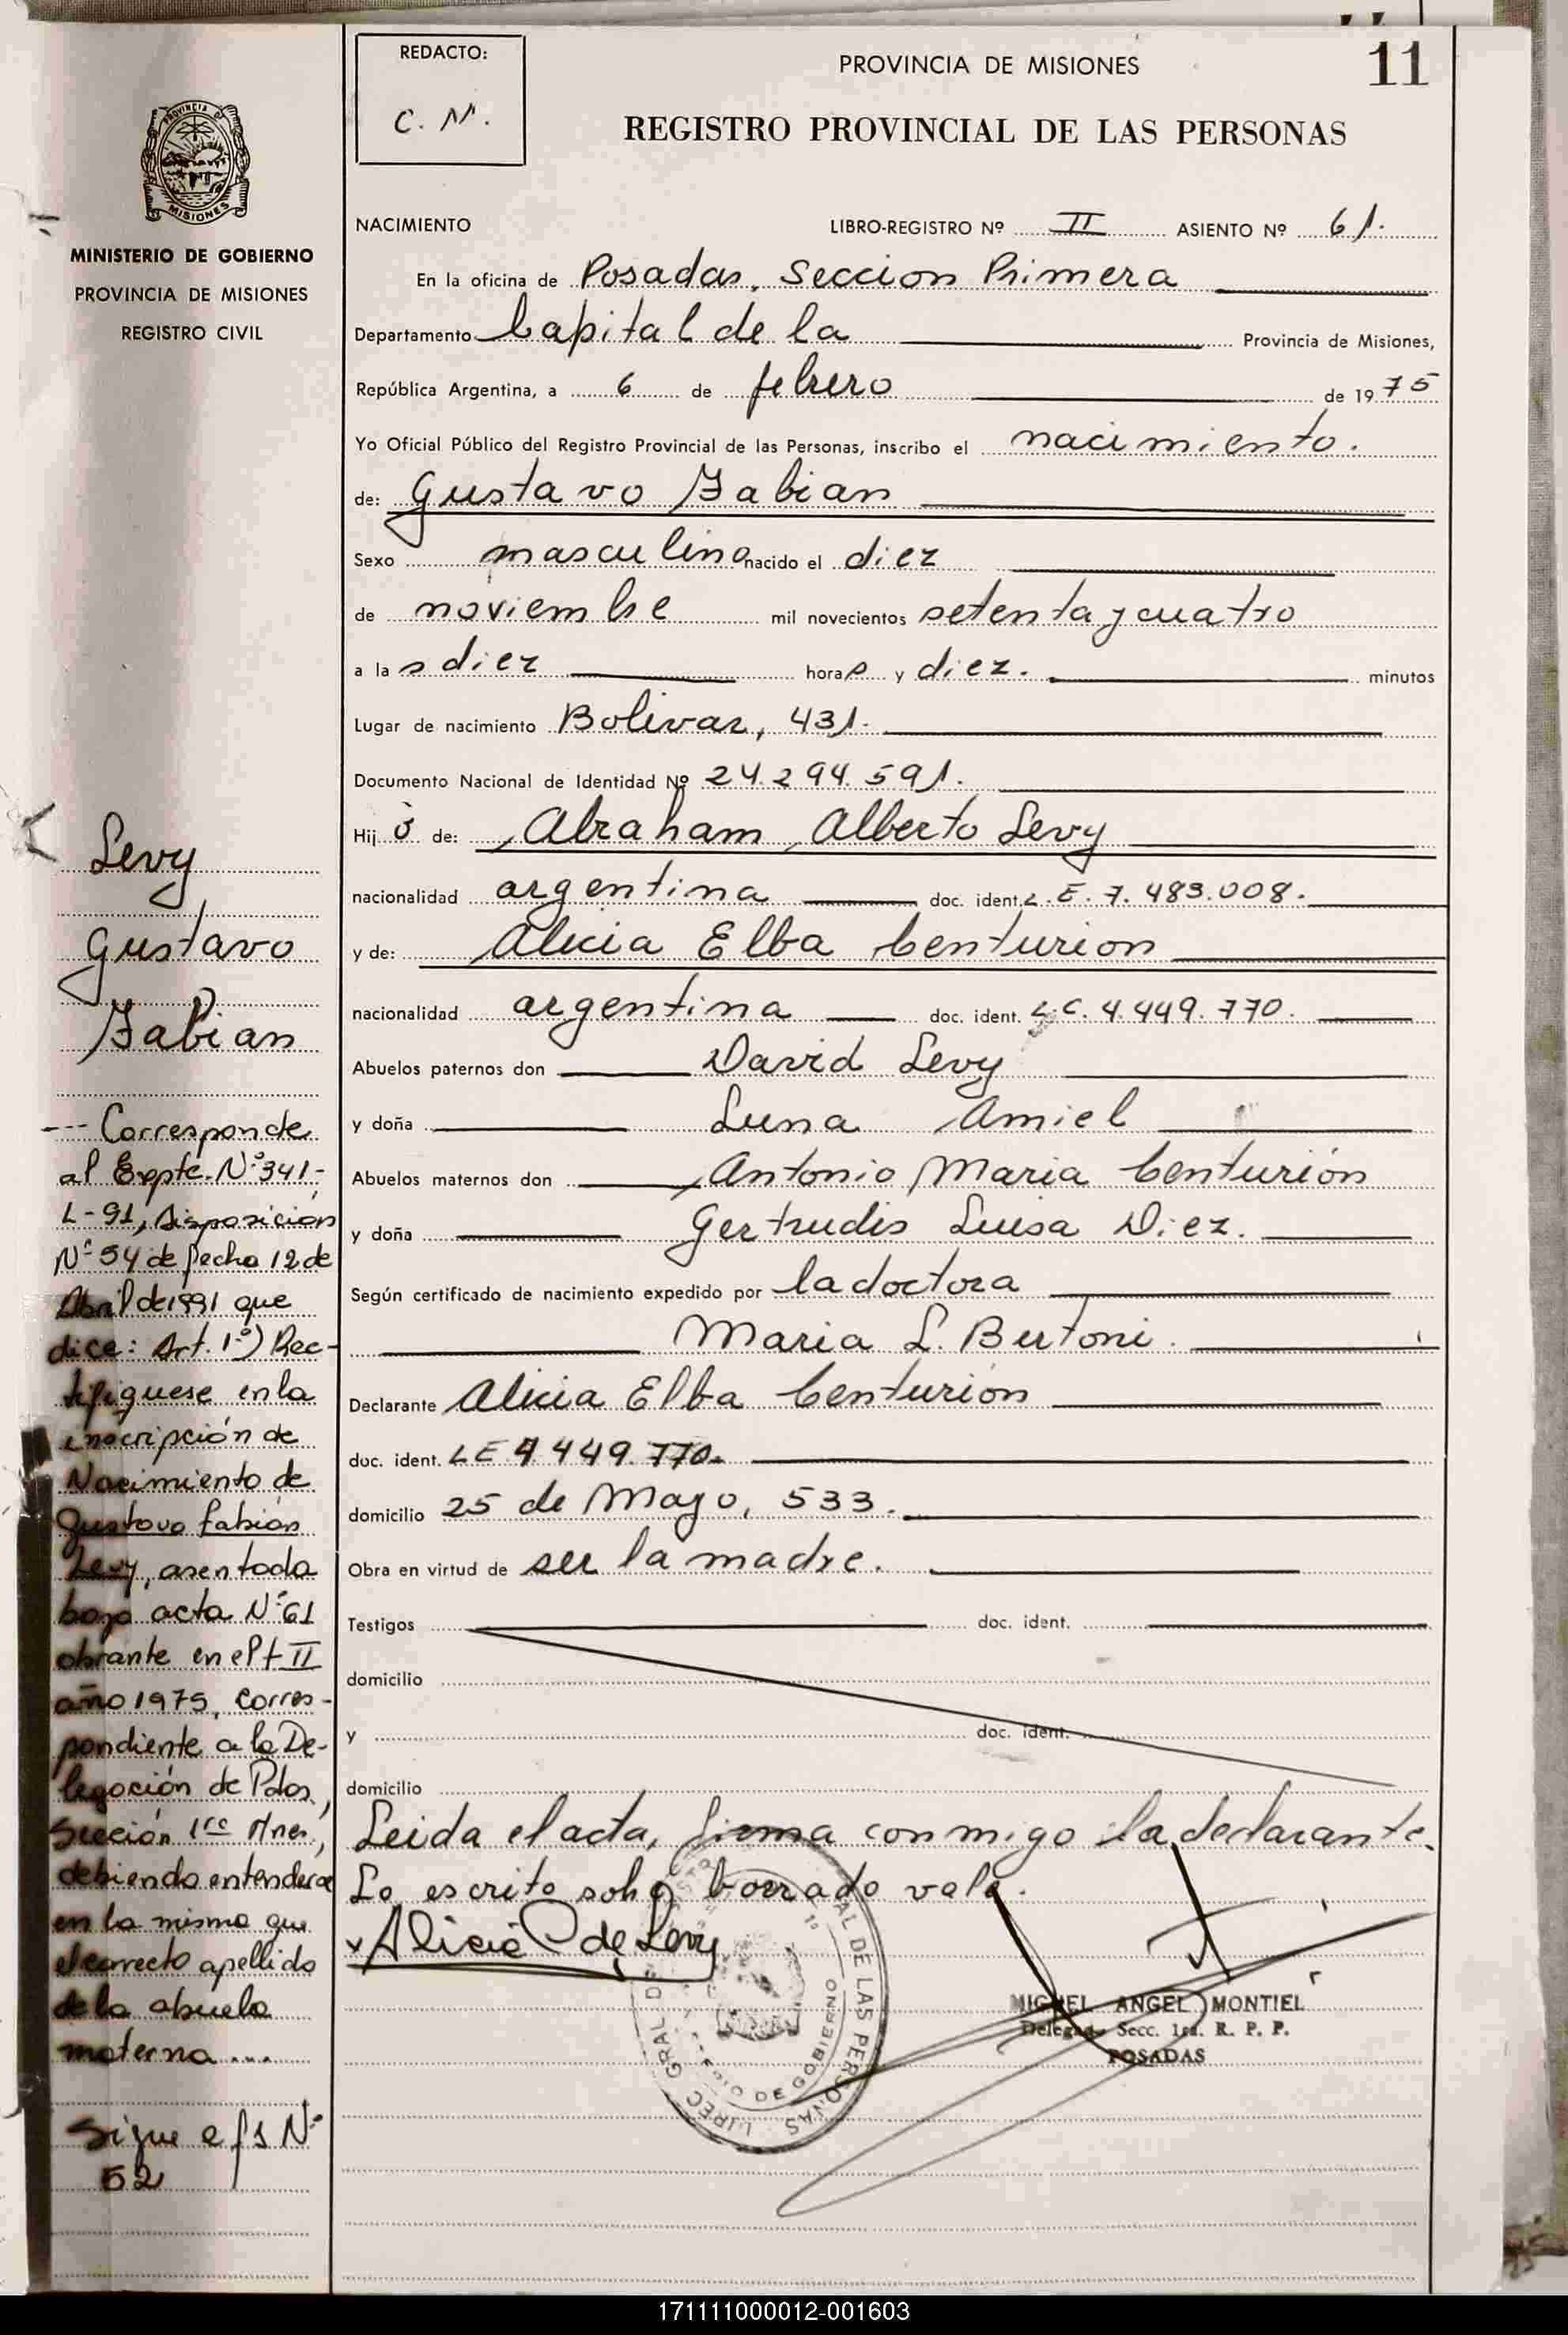 11
REDACTO:
C. M.
PROVINCIA DE MISIONES
REGISTRO PROVINCIAL DE LAS PERSONAS
PROVINCIA D
MISIONES
MINISTERIO DE GOBIERNO
PROVINCIA DE MISIONES
REGISTRO CIVIL
NACIMIENTO LIBRO-REGISTRO Nº II ASIENTO Nº 61.
En la oficina de Posadas, Seccion Primera
Departamento Capital de la Provincia de Misiones,
República Argentina, a 6 de febrero de 1975
Yo Oficial Público del Registro Provincial de las Personas, inscribo el nacimiento.
de: Gustavo Fabian
Sexo masculino nacido el diez
de noviembre mil novecientos setenta y cuatro
a las diez horas y diez. minutos
Lugar de nacimiento Bolivar, 431.
Documento Nacional de Identidad Nº 24.294.591.
Hijo de: Abraham Alberto Levy
nacionalidad argentina doc. ident. L.E. 7.483.008.
y de: Alicia Elba Centurion
nacionalidad argentina doc. ident. L.C. 4.449.770.
Abuelos paternos don David Levy
y doña Luna Amiel
Abuelos maternos don Antonio Maria Centurión
y doña Gertrudis Luisa Diez.
Según certificado de nacimiento expedido por la doctora
Maria L. Bertoni.
Declarante Alicia Elba Centurión
doc. ident. LE 4.449.770.
domicilio 25 de Mayo, 533.
Obra en virtud de ser la madre.
Testigos doc. ident.
domicilio
y doc. ident.
domicilio
Leida el acta, firma conmigo la declarante.
Lo escrito sobre borrado vale.
Alicia C de Levy
MIGUEL ANGEL MONTIEL
Delegado Secc. 1ra. R. P. P.
POSADAS
DIREC GRAL DE LAS PERSONAS
DE GOBIERNO
Levy
Gustavo
Fabian
--- Corresponde
al Expte. Nº 341-
L-91, Disposición
Nº 54 de fecha 12 de
Abril de 1991 que
dice: Art. 1º) Rec-
tifiquese en la
inscripción de
Nacimiento de
Gustavo Fabián
Levy, asentada
bajo acta Nº 61
obrante en el t II
año 1975, corres-
pondiente a la De-
legación de Pdas,
Sección 1ra Mnes,
debiendo entenderse
en la misma que
el correcto apellido
de la abuela
materna ...
Sigue a fs Nº
52
171111000012-001603